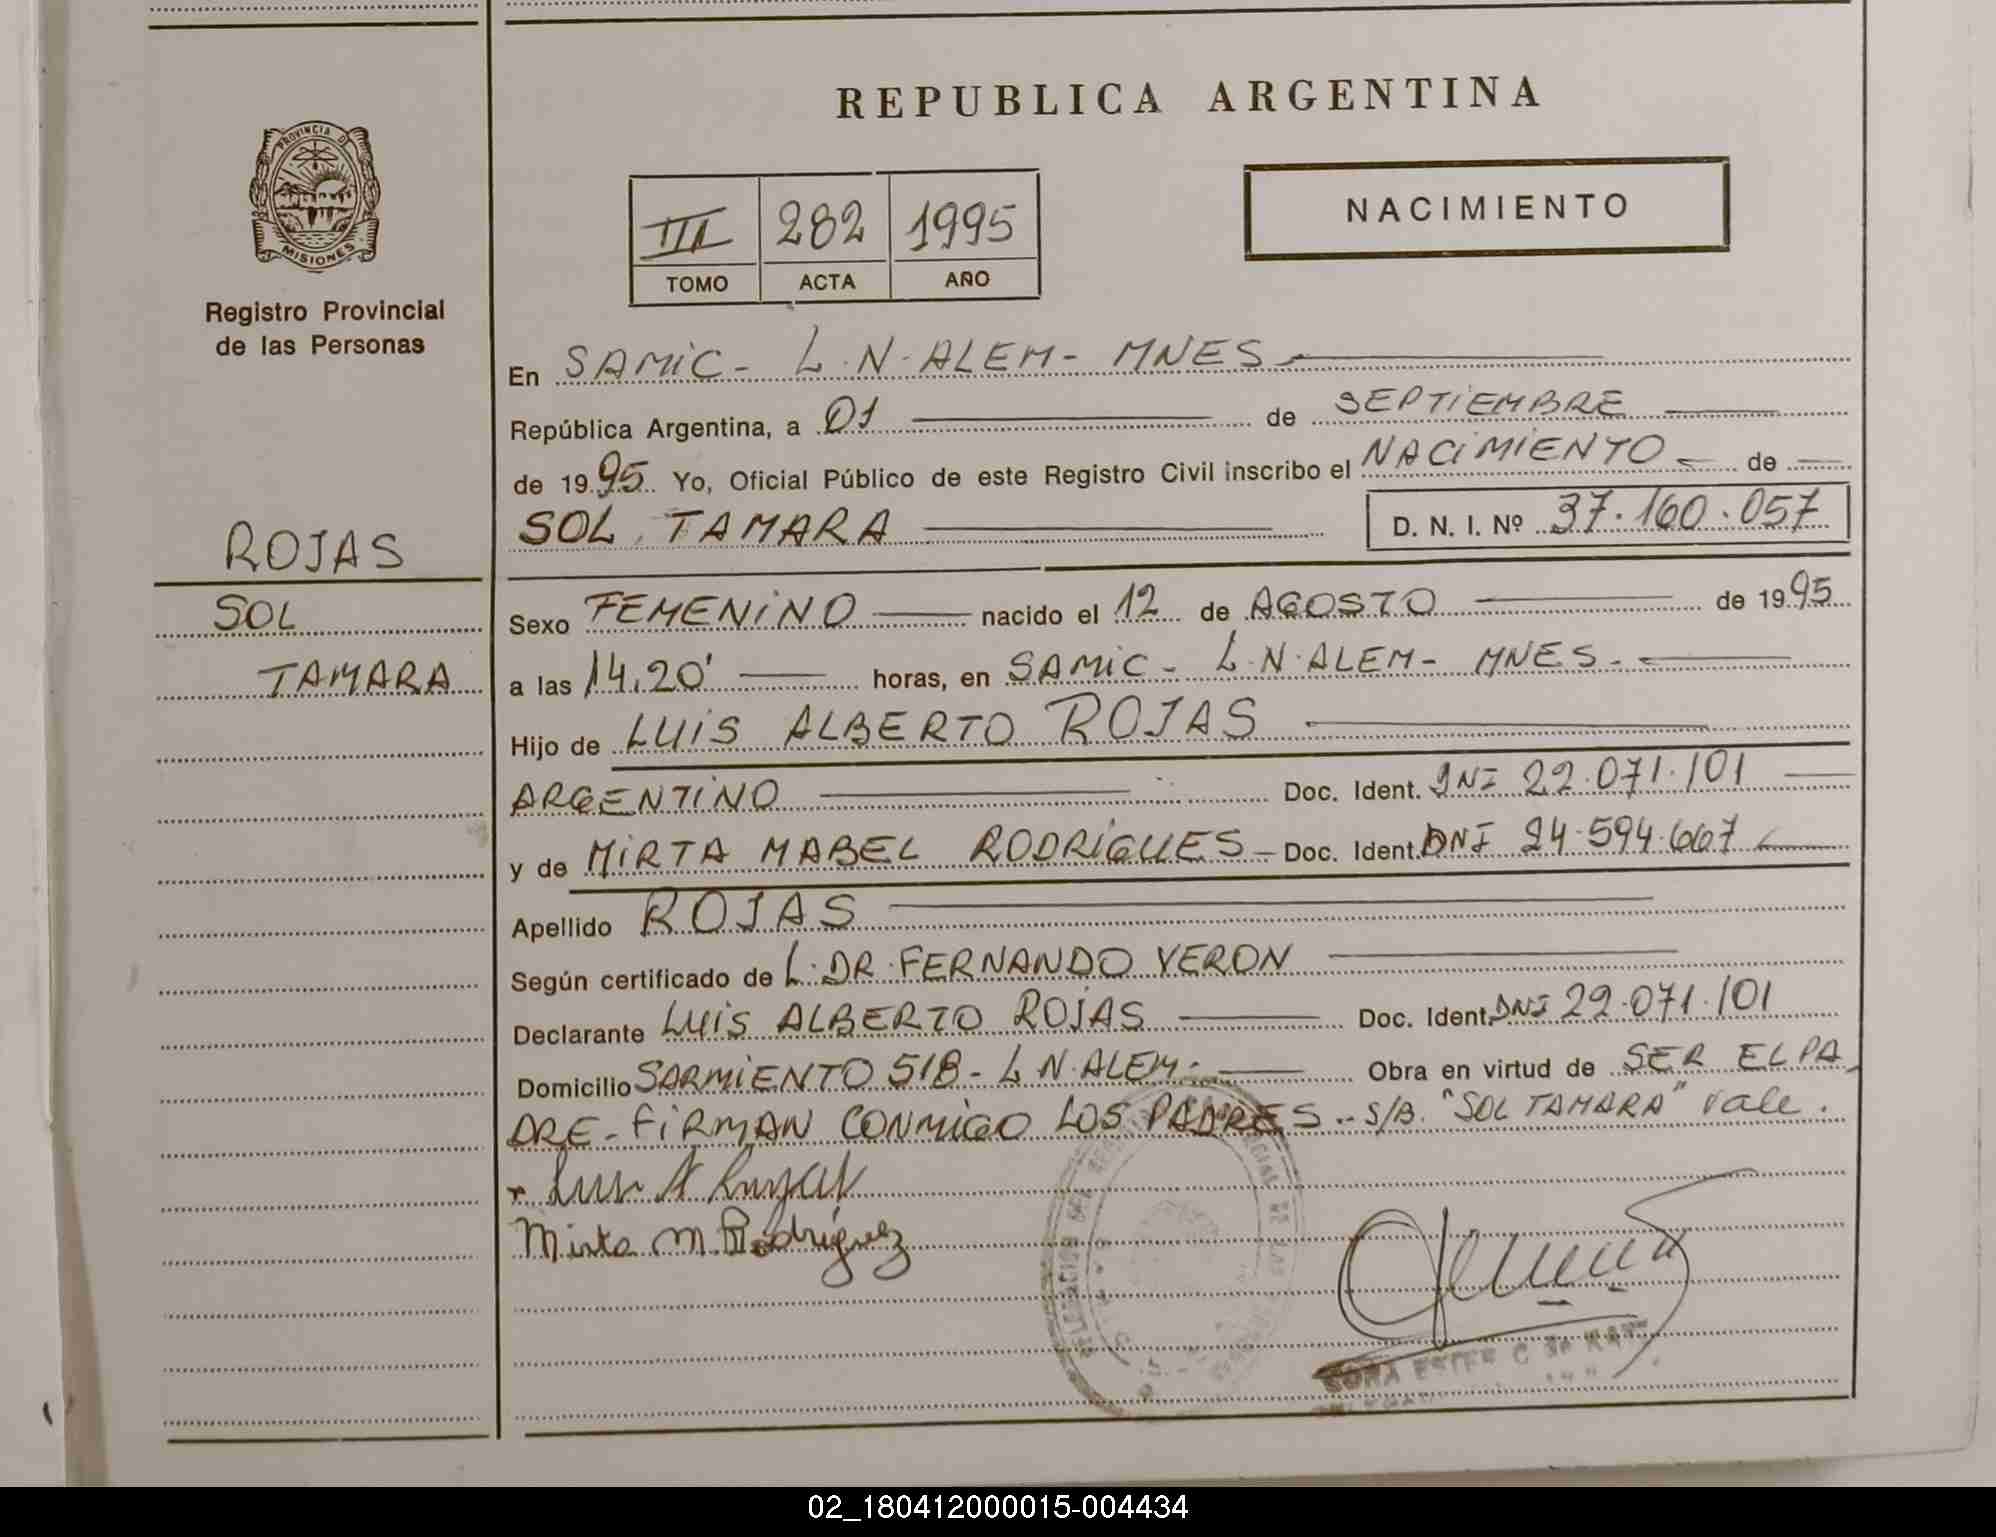 PROVINCIA DE
MISIONES
Registro Provincial
de las Personas
ROJAS
SOL
TAMARA
REPUBLICA ARGENTINA
III 282 1995
TOMO ACTA AÑO
NACIMIENTO
En SAMIC - L.N. ALEM - MNES -
República Argentina, a 01 de SEPTIEMBRE
de 1995 Yo, Oficial Público de este Registro Civil inscribo el NACIMIENTO - de
SOL TAMARA D. N. I. Nº 37.160.057
Sexo FEMENINO nacido el 12 de AGOSTO de 1995
a las 14.20' horas, en SAMIC - L.N. ALEM - MNES -
Hijo de LUIS ALBERTO ROJAS
ARGENTINO Doc. Ident. DNI 22.071.101
y de MIRTA MABEL RODRIGUES - Doc. Ident. DNI 24.594.667
Apellido ROJAS
Según certificado de L. DR. FERNANDO VERON
Declarante LUIS ALBERTO ROJAS Doc. Ident. DNI 22.071.101
Domicilio SARMIENTO 518 - L N. ALEM - Obra en virtud de SER EL PA
DRE - FIRMAN CONMIGO LOS PADRES - S/B. "SOL TAMARA" vale.
Mirta M. Rodríguez
02_180412000015-004434